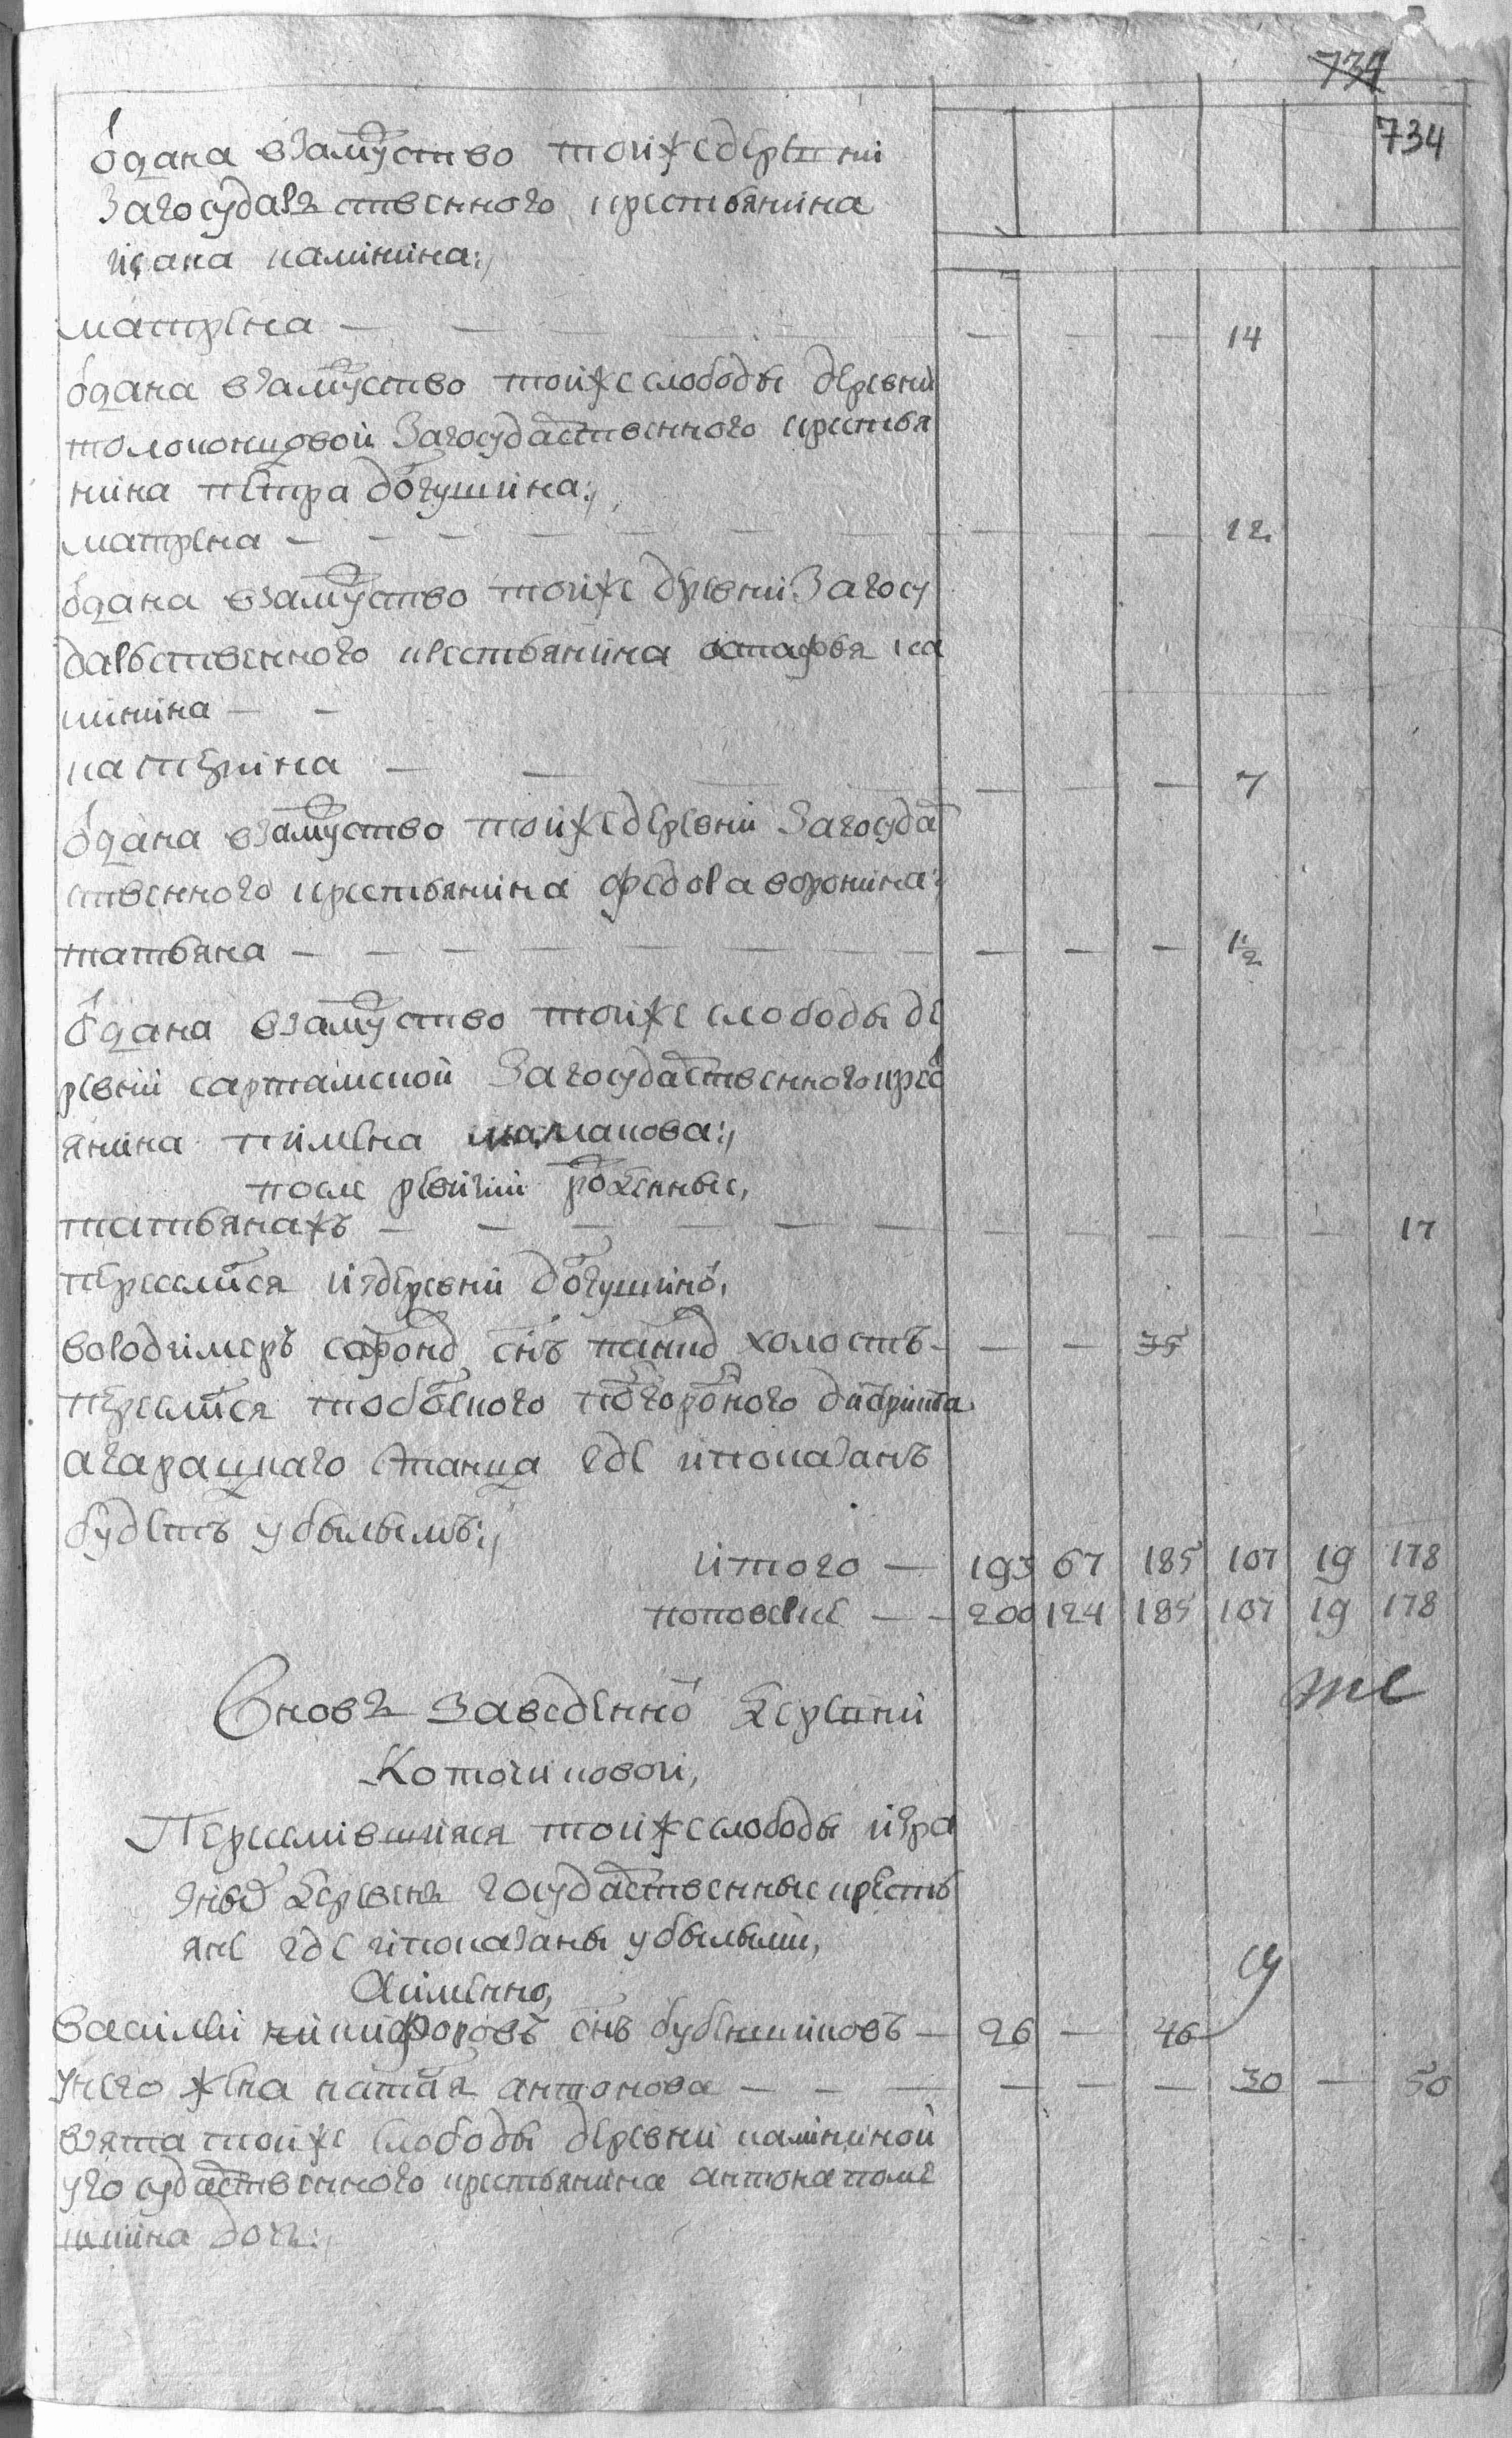 734
734
отдана взамужство тойже деревни
за государственного крестьянина
ивана калинина:,
матрена — — — — — 14
отдана взамужство тойже слободы деревни
толоконцовой за государственного крестья
нина петра богушина:,
матрена — — — — — — 12
отдана взамужство тойже деревни за госу
дарственного крестьянина остафья ка
линина — —
катерина — — — — — 7
отдана взамужство тойже деревни за государ
ственного крестьянина федора воронина:,
татьяна — — — — — — 1/2
отдана взамужство тойже слободы де
ревни сартамской за государственного крест
янина пимена мамакова:,
после ревизии рожденные,
татьянахъ — — — — — — — 17
переселился издеревни богушиной,
володимеръ сафоновъ снъ панинъ холостъ — — — 35
переселился тобольского подгородного дистрикта
агарацкаго станца где ипоказанъ
будетъ убылымъ:,
итого — 193 67 185 107 19 178
поповерке — — 200 124 185 107 19 178
Вновь заведенной деревни
же
Коточиковой,
Переселившияся тойже слободы изра
зныхъ деревень государственные кресть
яне где ипоказаны убылыми,
Аимянно,
Василей никифоровъ снъ бубенщиковъ — 26 — 46
унего жена наталья антонова — — — — — — 30 — 50
взята тойже слободы деревни калининой
угосударственного крестьянина антона
дочь:,